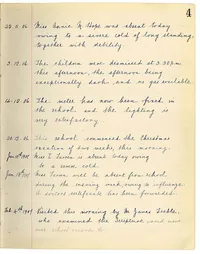 4
28.11.06 Miss Janie M. Hope was absent today
owing to a severe cold of long standing,
together with debility.
3.12.06 The children were dismissed at 3.30 p.m.
this afternoon, the afternoon being
exceptionally dark and no gas available.
14.12.06 The meter has now been fixed in
the school and the lighting is
very satisfactory.
20.12.06 This school commenced the Christmas
vacation of two weeks, this morning.
Miss is absent today owing
to a cold.
Miss will be absent from school
during the ensuing week, owing to influenza.
A doctor's certificate has been forwarded.
Visited this morning by Mr James
who examined the